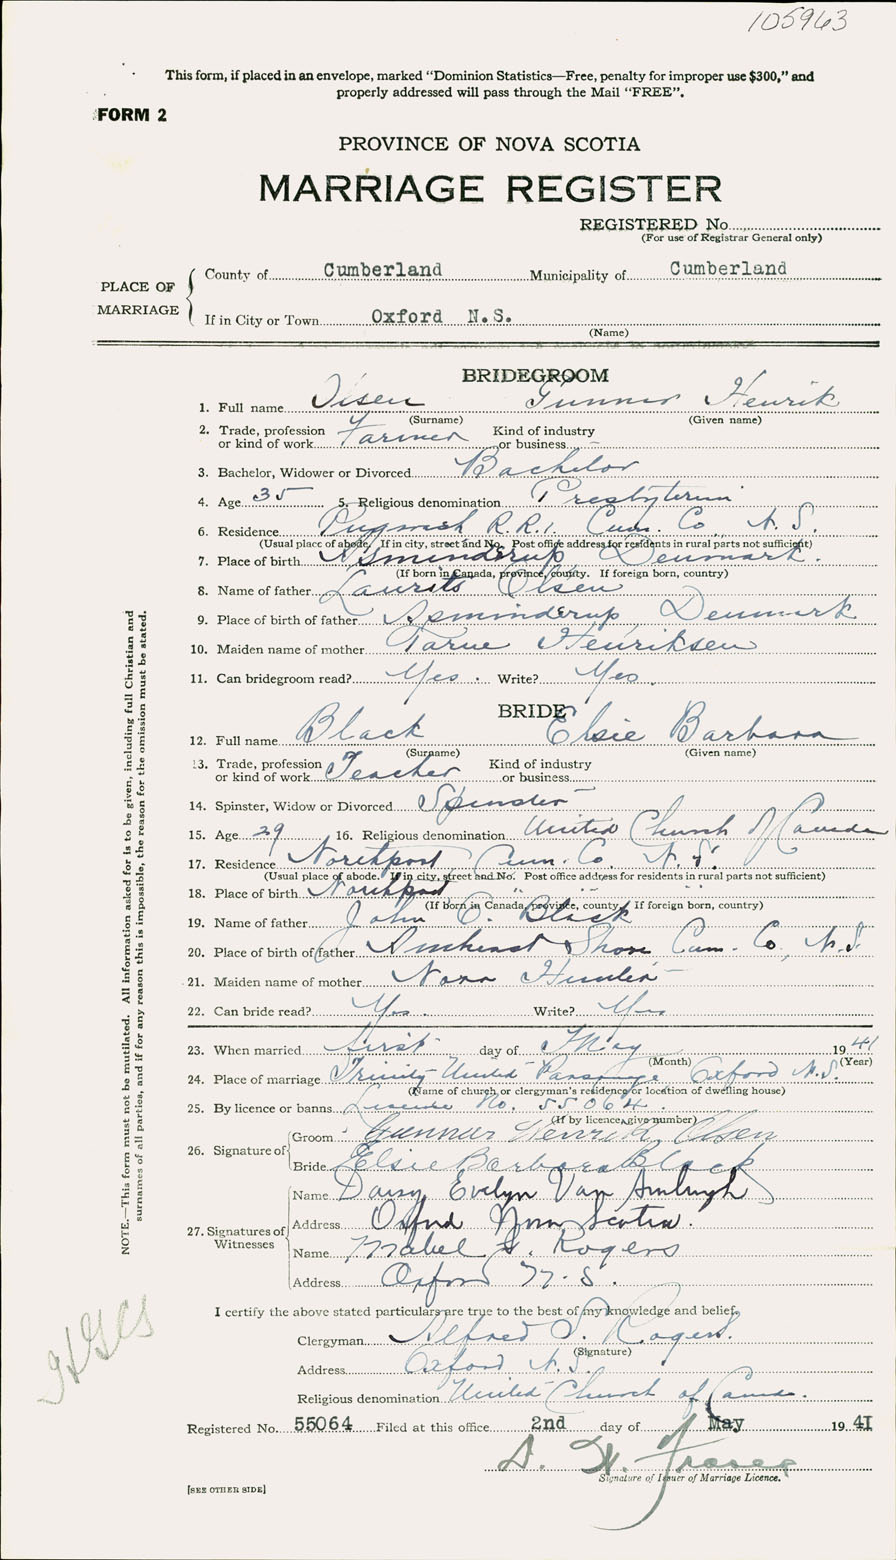 105963
This form, if placed in an envelope, marked “Dominion Statistics—Free, penalty for improper use $300,” and
properly addressed will pass through the Mail “FREE”.
FORM 2
PROVINCE OF NOVA SCOTIA
MARRIAGE REGISTER
REGISTERED No.
(For use of Registrar General only)
PLACE OF MARRIAGE
County of Cumberland Municipality of Cumberland
If in City or Town Oxford N.S.
(Name)
BRIDEGROOM
1. Full name Olsen Gunnar Henrik
(Surname) (Given name)
2. Trade, profession or kind of work Farmer Kind of industry or business —
3. Bachelor, Widower or Divorced Bachelor
4. Age 35 5. Religious denomination Presbyterian
6. Residence Pugwash R.R.1. Cum. Co N.S.
(Usual place of abode. If in city, street and No. Post office address for residents in rural parts not sufficient)
7. Place of birth Asminderup Denmark.
(If born in Canada, province, county. If foreign born, country)
8. Name of father Laurits Olsen
9. Place of birth of father Asminderup Denmark
10. Maiden name of mother Henriksen
11. Can bridegroom read? Yes. Write? Yes.
BRIDE
12. Full name Black Elsie Barbara
(Surname) (Given name)
13. Trade, profession or kind of work Teacher Kind of industry or business
14. Spinster, Widow or Divorced Spinster
15. Age 29 16. Religious denomination United Church of Canada
17. Residence Northport Cum. Co. N.S.
(Usual place of abode. If in city, street and No. Post office address for residents in rural parts not sufficient)
18. Place of birth Northport " " "
(If born in Canada, province, county. If foreign born, country)
19. Name of father John C. Black
20. Place of birth of father Amherst Shore Cum. Co., N.S.
21. Maiden name of mother Nora Hunter
22. Can bride read? Yes. Write? Yes
23. When married first day of May 1941
(Month) (Year)
24. Place of marriage Trinity United Parsonage Oxford N.S.
(Name of church, or clergyman's residence, or location of dwelling house)
25. By licence or banns License No. 55064.
(If by licence, give number)
26. Signature of
Groom Gunnar Henrik Olsen
Bride Elsie Barbara Black
27. Signatures of Witnesses
Name Daisy Evelyn Van Amburgh
Address Oxford Nova Scotia.
Name Mabel S. Rogers
Address Oxford N.S.
I certify the above stated particulars are true to the best of my knowledge and belief.
Clergyman Alfred S. Rogers.
(Signature)
Address Oxford N.S.
Religious denomination United Church of Canada.
Registered No. 55064 Filed at this office 2nd day of May 1941
D. W. Fraser
Signature of Issuer of Marriage Licence.
[SEE OTHER SIDE]
NOTE.—This form must not be mutilated. All information asked for is to be given, including full Christian and
surnames of all parties, and if for any reason this is impossible, the reason for the omission must be stated.